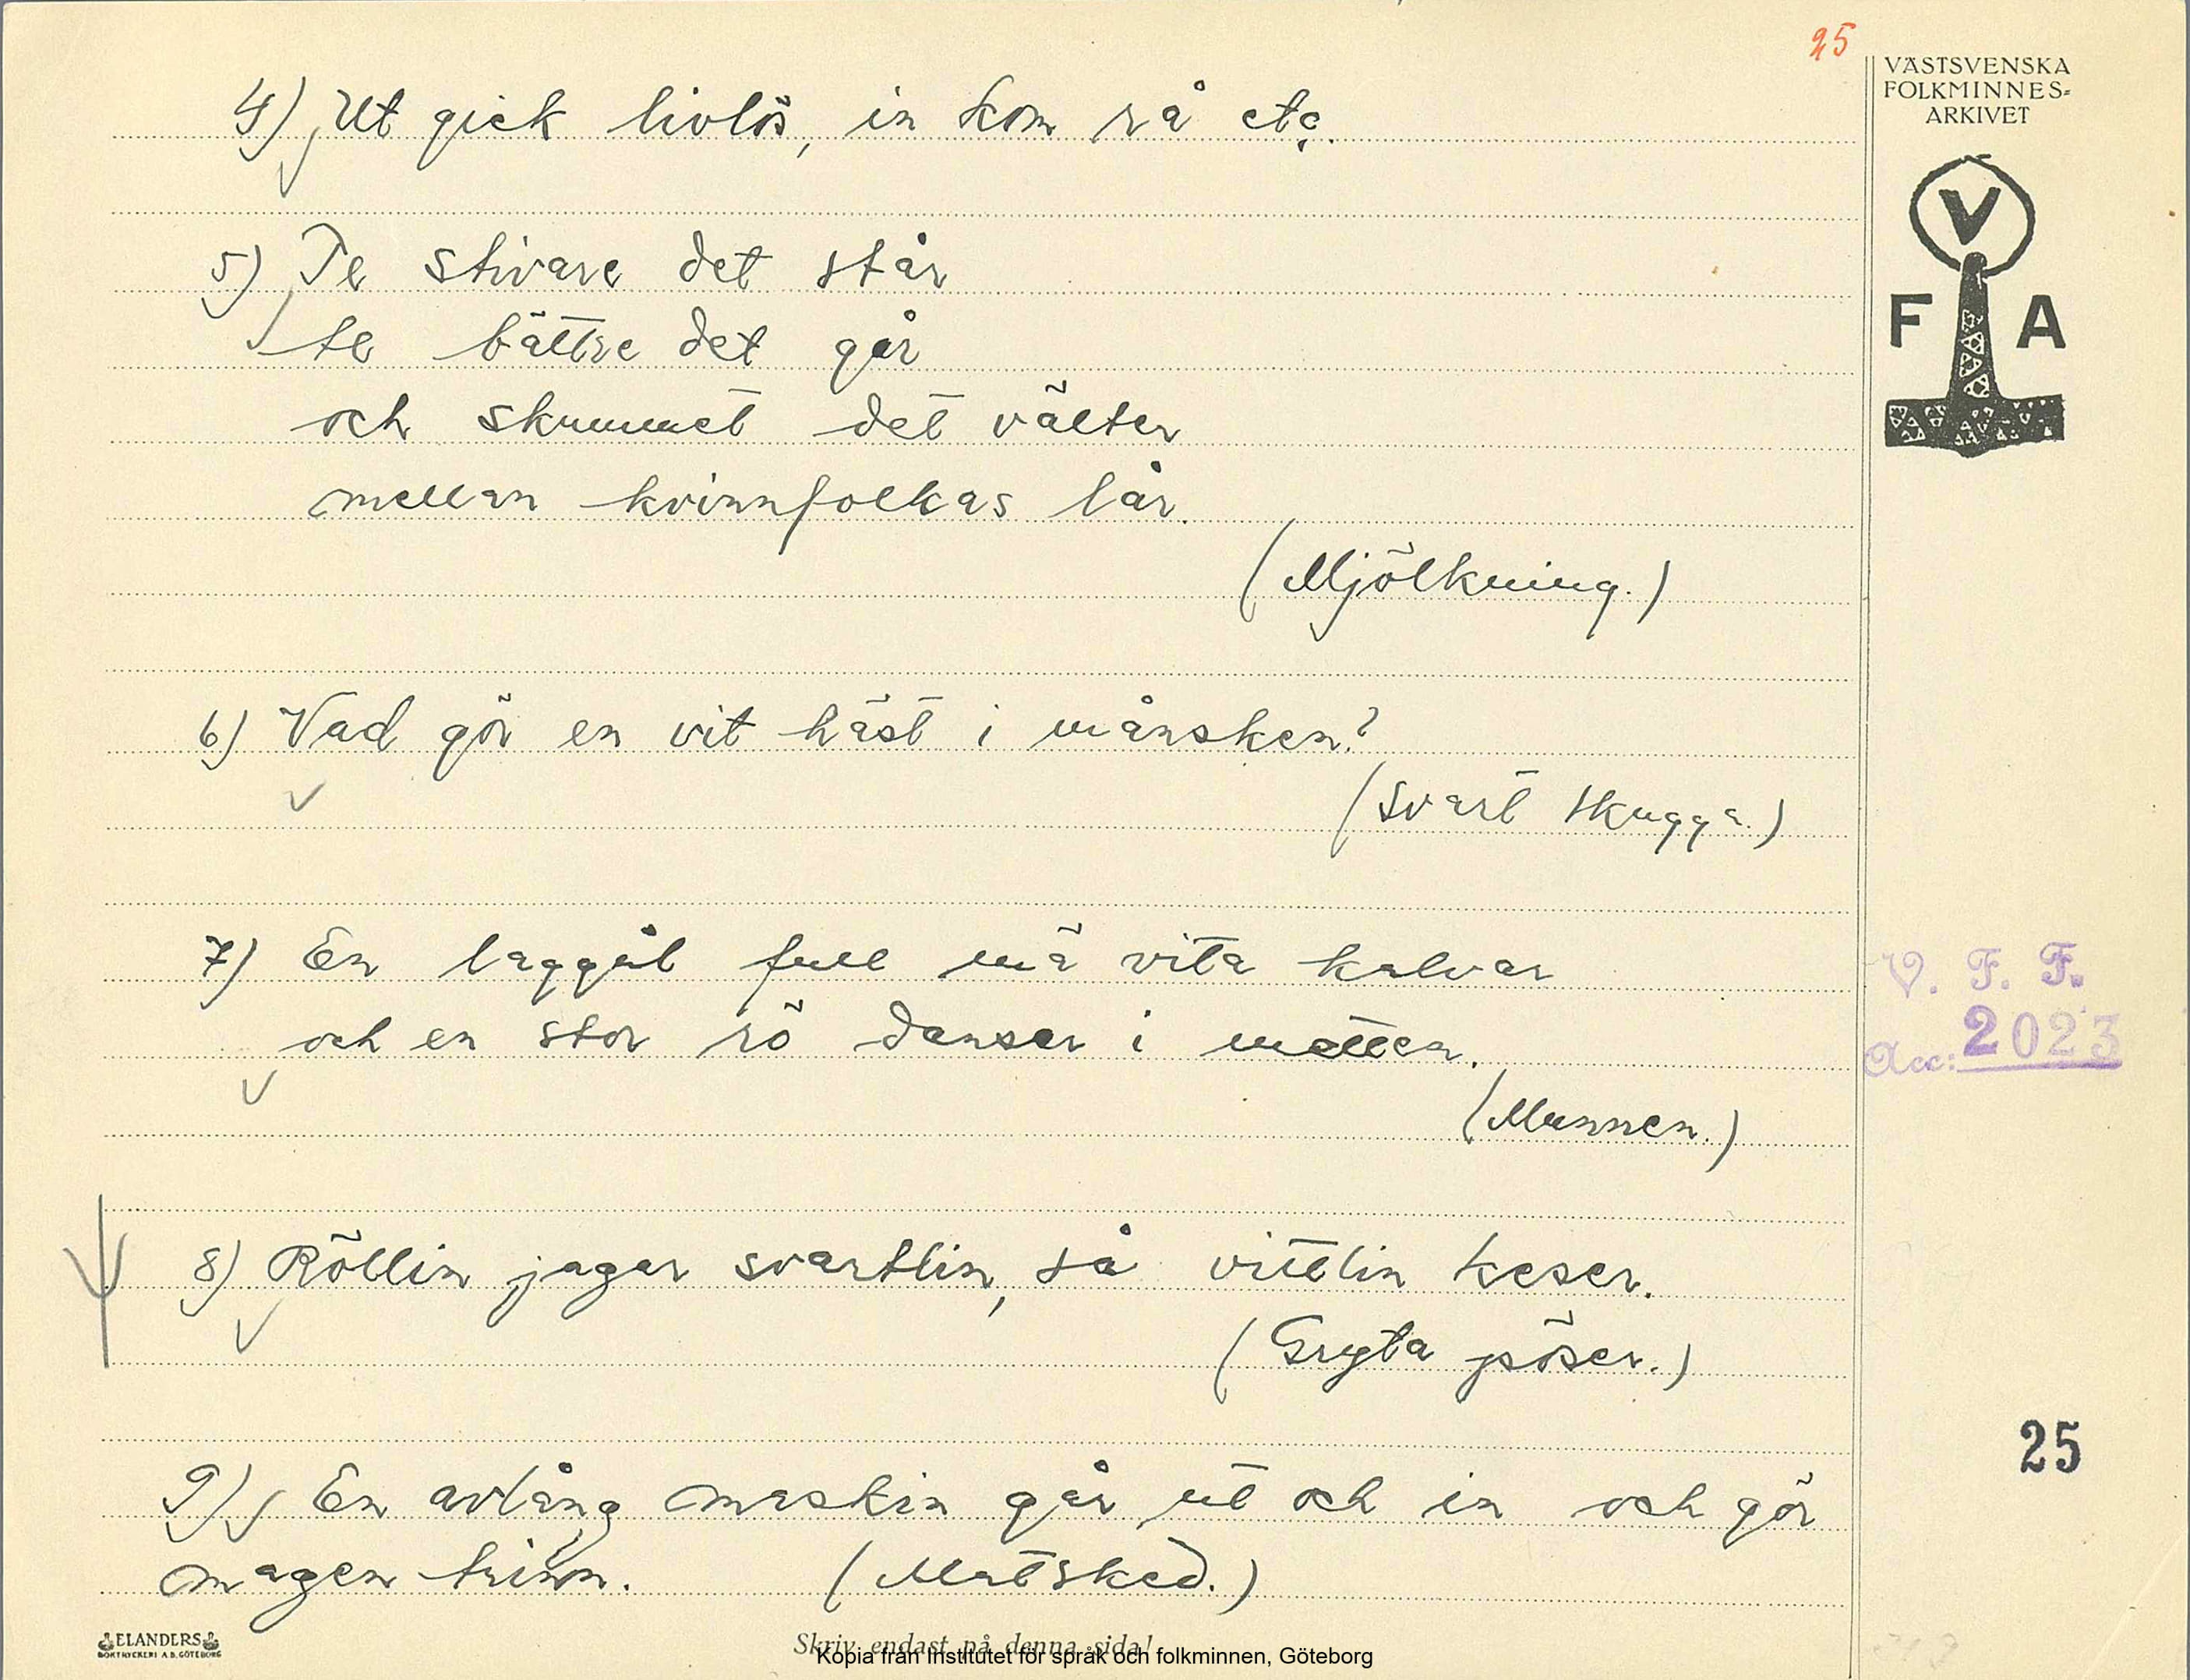 25
VÄSTSVENSKA
FOLKMINNES=
ARKIVET
V
F A
4) Ut gick livlös, in kom rå etc.
5) Te stivare det står
te bättre det går
och skummet det välter
mellan kvinnfolkas lår.
(Mjölkning.)
6) Vad gör en vit häst i månsken?
(Svart skugga.)
7) En laggål full mä vita kalvar
och en stor rö danser i metten.
(Munnen.)
V. F. F.
Acc: 2023
8) Röllin jagar svartlin, så vitelin keser.
(Gryta pöser.)
25
9) En avlång maskin går ut och in och gör
magen trinn. (Matsked.)
ELANDERS
BOKTRYCKERI A.B. GÖTEBORG
Skriv endast på denna sida!
Kopia från Institutet för språk och folkminnen, Göteborg